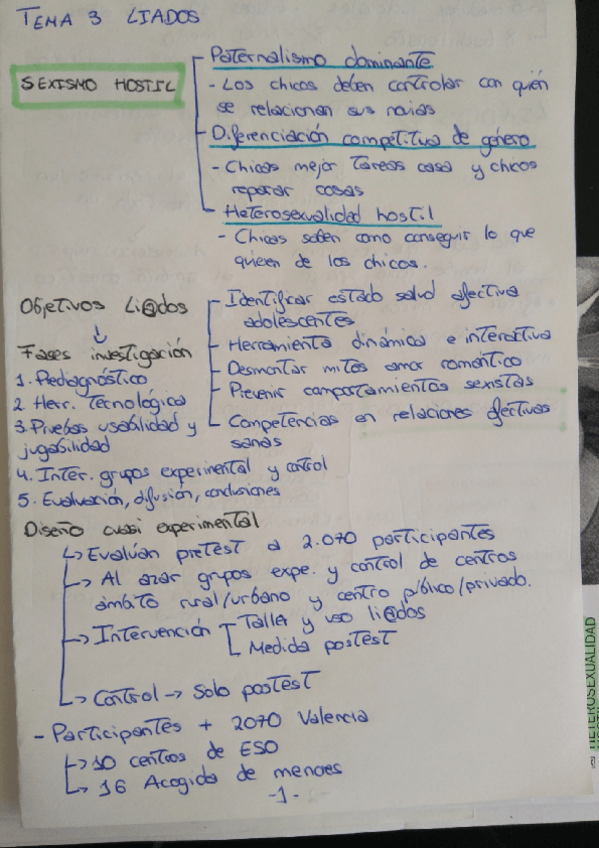 TEMA 3 LIADOS
SEXISMO HOSTIL
Paternalismo dominante
- Los chicos deben controlar con quién
se relacionan sus novias
Diferenciación competitiva de género
- Chicas mejor tareas casa y chicos
reparar cosas
Heterosexualidad hostil
- Chicas saben como conseguir lo que
quieren de los chicos.
Objetivos Li@dos
Identificar estado salud afectiva
adolescentes
Herramienta dinámica e interactiva
Desmontar mitos amor romántico
Prevenir comportamientos sexistas
Competencias en relaciones afectivas
sanas
Fases investigación
1. Prediagnóstico
2 Herr. Tecnológica
3. Pruebas usabilidad y
jugabilidad
4. Inter. grupos experimental y control
5. Evaluación, difusión, conclusiones
Diseño cuasi experimental
↳ Evalúan pretest a 2.070 participantes
→ Al azar grupos expe. y control de centros
ámbito rural/urbano y centro público/privado.
→ Intervención
Taller y uso li@dos
Medida postest
↳ Control → Solo postest
- Participantes + 2070 Valencia
↳ 10 centros de ESO
↳ 16 Acogida de menores
-1-
HETEROSEXUALIDAD